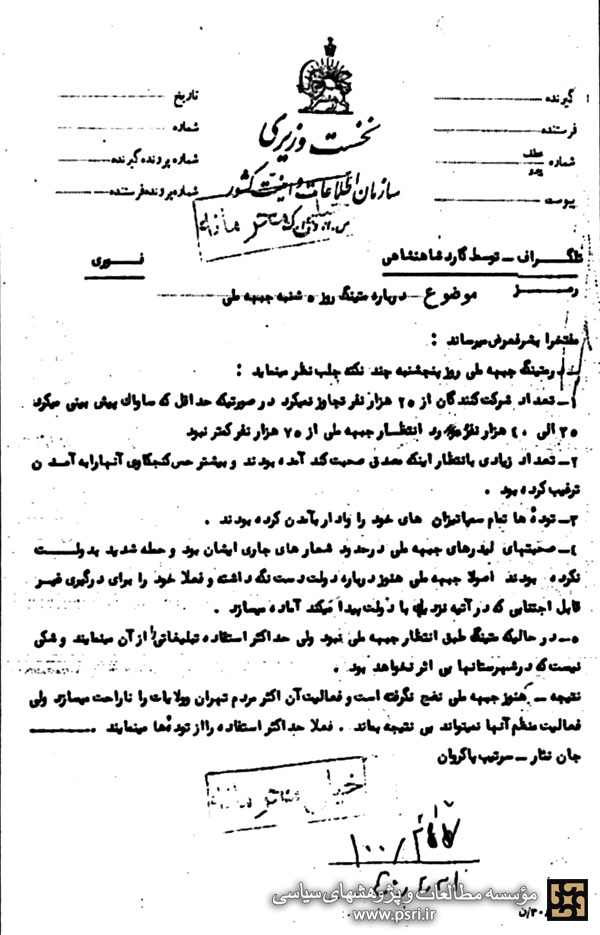 گیرنده
فرستنده
شماره عطف پیرو
پیوست
تاریخ
شماره
شماره پرونده گیرنده
شماره پرونده فرستنده
نخست وزیری
سازمان اطلاعات و امنیت کشور
تلگراف - توسط گارد شاهنشاهی فوری
رمز موضوع درباره متینگ روز ۵ شنبه جبهه ملی
مفتخرا بشرفعرض میرساند :
در متینگ جبهه ملی روز پنجشنبه چند نکته جلب نظر مینماید :
۱- تعداد شرکت کنندگان از ۲۵ هزار نفر تجاوز نمیکرد در صورتیکه حداقل که ساواک پیش بینی میکرد
۳۵ الی ۴۰ هزار نفر بود انتظار جبهه ملی از ۷۵ هزار نفر کمتر نبود
۲- تعداد زیادی بانتظار اینکه مصدق صحبت کند آمده بودند و بیشتر حس کنجکاوی آنها را به آمدن
ترغیب کرده بود .
۳- توده ها تمام سمپاتیزان های خود را وادار بآمدن کرده بودند .
۴- صحبتهای لیدرهای جبهه ملی در حدود شعارهای جاری ایشان بود و حمله شدید بدولت
نکرده بودند اصولا جبهه ملی هنوز درباره دولت دست نگه داشته و فعلا خود را برای درگیری غیر
قابل اجتنابی که در آتیه نزدیک با دولت پیدا میکند آماده میسازد .
۵- در حالیکه متینگ طبق انتظار جبهه ملی نبود ولی حداکثر استفاده تبلیغاتی را از آن مینمایند و شکی
نیست که در شهرستانها بی اثر نخواهد بود .
نتیجه - هنوز جبهه ملی نضج نگرفته است و فعالیت آن اکثر مردم تهران وولایات را ناراحت میسازد ولی
فعالیت منظم آنها نمیتواند بی نتیجه بماند . فعلا حداکثر استفاده را از توده ها مینمایند .
جان نثار - سرتیپ پاکروان
خیلی
۱۰۰/
مؤسسه مطالعات و پژوهشهای سیاسی
www.psri.ir